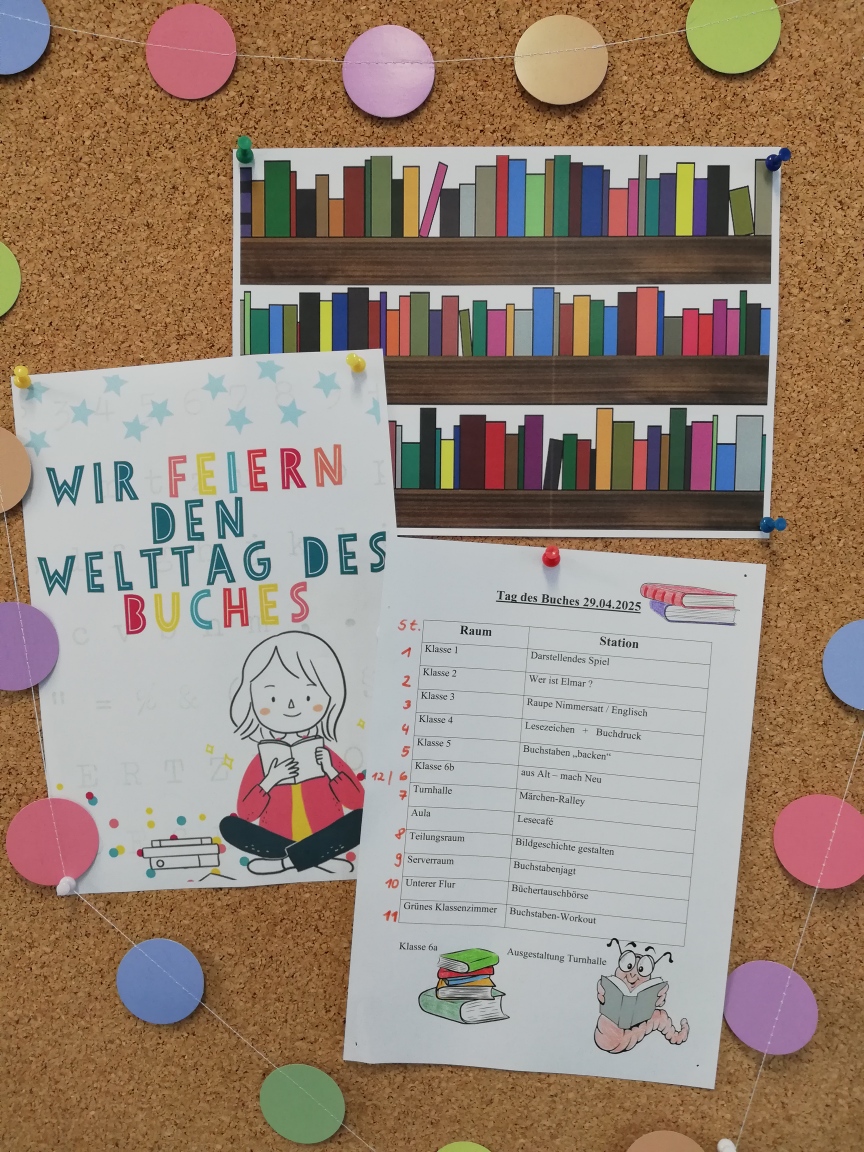 WIR FEIERN
DEN
WELTTAG DES
BUCHES
Tag des Buches 29.04.2025
St. Raum Station
1 Klasse 1 Darstellendes Spiel
2 Klasse 2 Wer ist Elmar ?
3 Klasse 3 Raupe Nimmersatt / Englisch
4 Klasse 4 Lesezeichen + Buchdruck
5 Klasse 5 Buchstaben „backen“
12/6 Klasse 6b aus Alt – mach Neu
7 Turnhalle Märchen-Ralley
Aula Lesecafé
8 Teilungsraum Bildgeschichte gestalten
9 Serverraum Buchstabenjagt
10 Unterer Flur Büchertauschbörse
11 Grünes Klassenzimmer Buchstaben-Workout
Klasse 6a Ausgestaltung Turnhalle